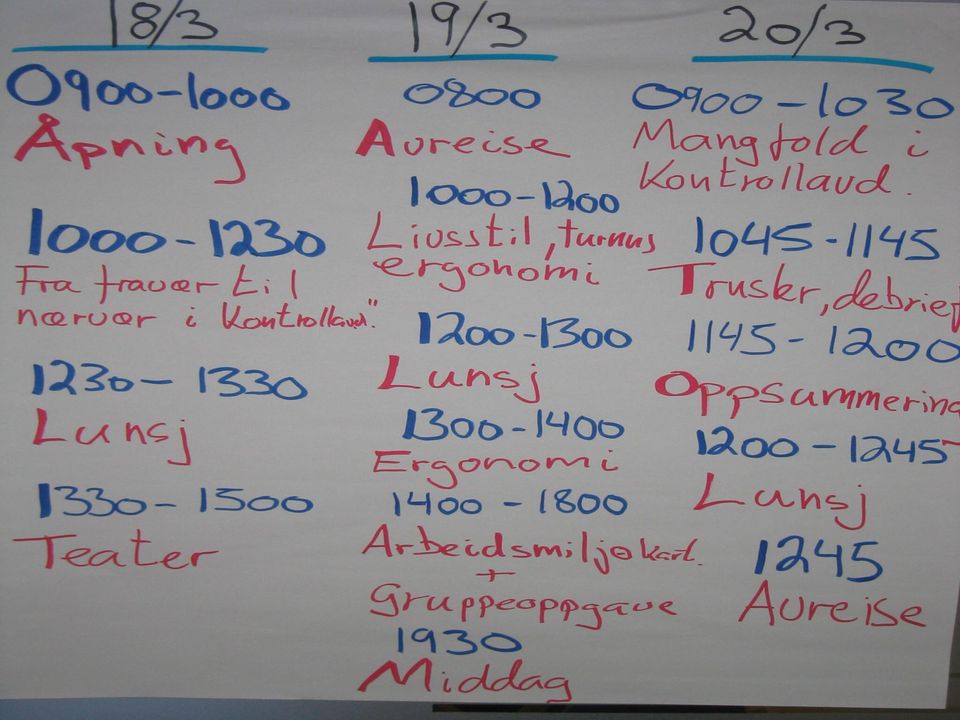 18/3
0900-1000
Åpning
1000-1230
Fra fravær til
nærvær i Kontrollavd."
1230-1330
Lunsj
1330-1500
Teater
19/3
0800
Avreise
1000-1200
Livsstil, turnus
ergonomi
1200-1300
Lunsj
1300-1400
Ergonomi
1400-1800
Arbeidsmiljøkart.
+
Gruppeoppgave
1930
Middag
20/3
0900-1030
Mangfold i
Kontrollavd.
1045-1145
Trusler, debrief
1145-1200
Oppsummering
1200-1245
Lunsj
1245
Avreise